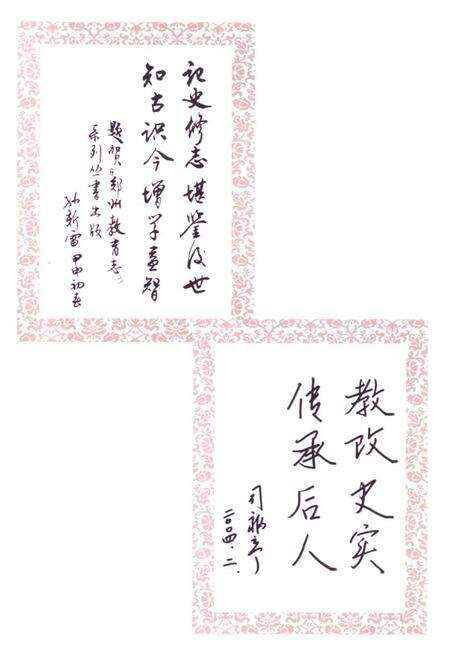 记史修志 堪鉴后世
知古识今 增学益智
题贺《郑州教育志》
系列丛书出版
孙新雷 甲申初春
教改史实
传承后人
司福亭
二〇〇四.二.